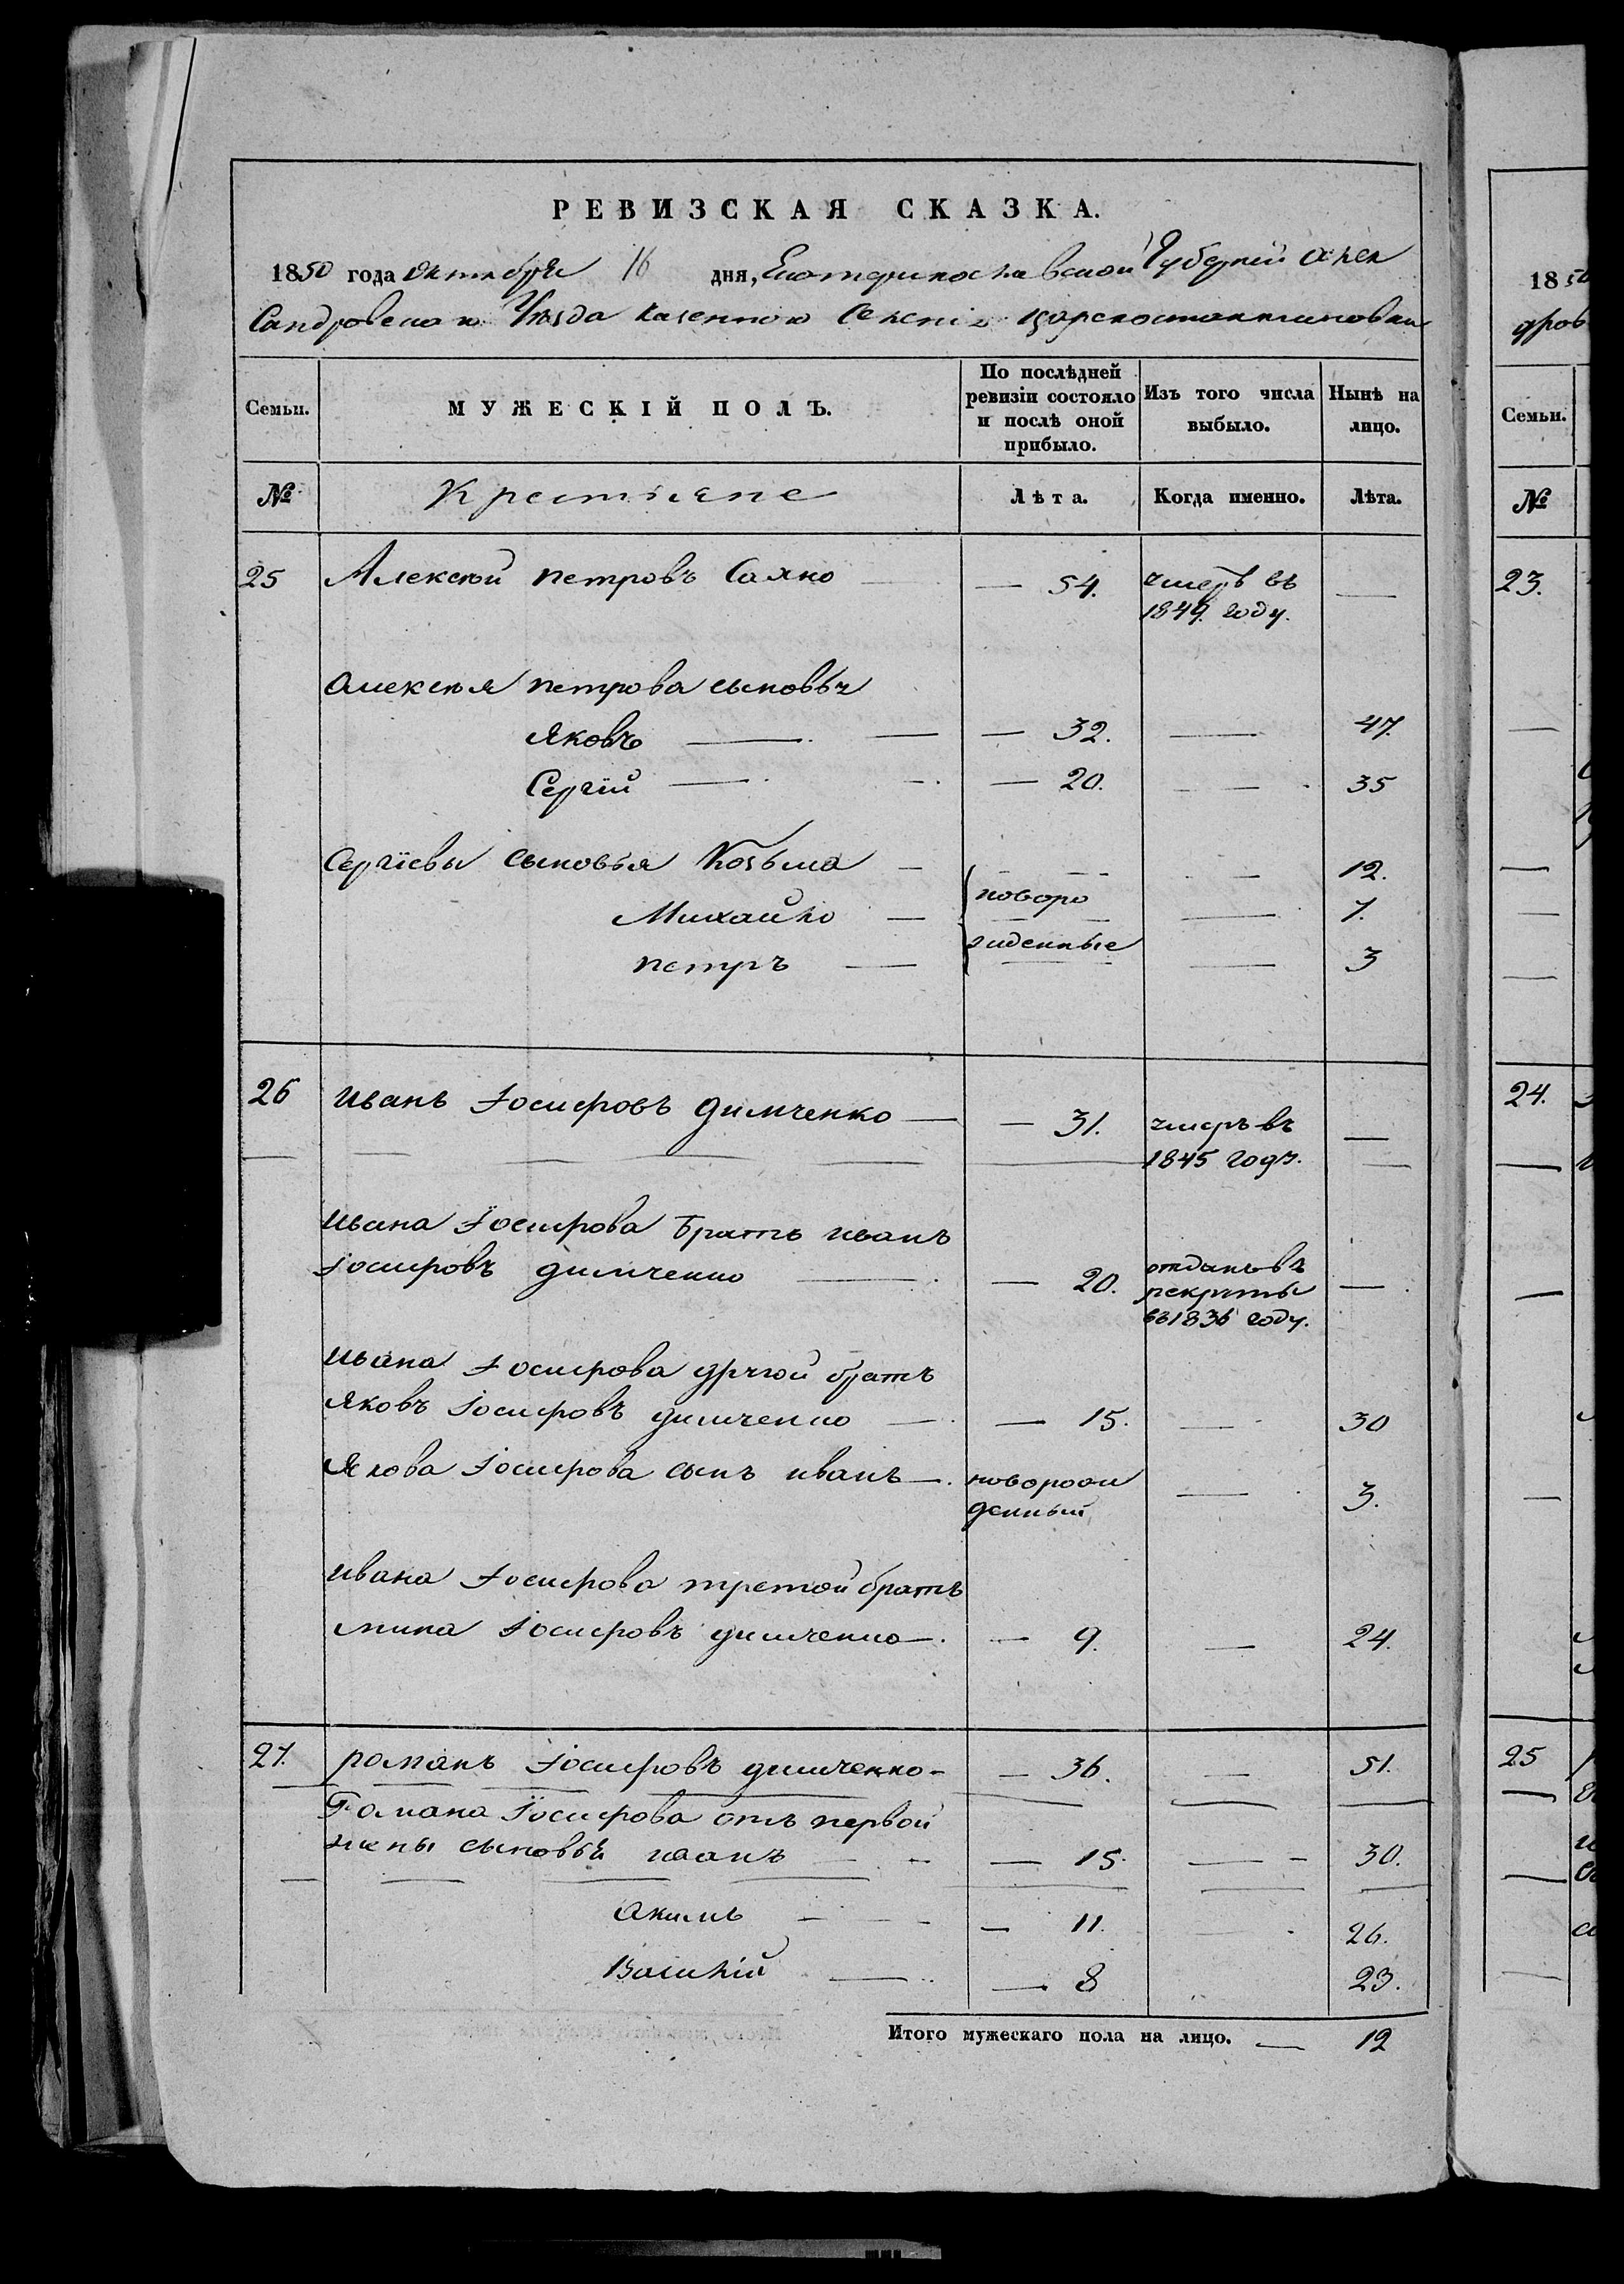 РЕВИЗСКАЯ СКАЗКА.
1850 года октября 16 дня, Екатеринославской Губерніи Алек
сандровскаго Уѣзда казенного Селенія Цареконстантиновки
Семьи. МУЖЕСКІЙ ПОЛЪ. По послѣдней ревизіи состояло и послѣ оной прибыло. Изъ того числа выбыло. Нынѣ на лицо.
№ Крестьяне Лѣта. Когда именно. Лѣта.
25 Алексѣй петровъ Саяко — 54. умеръ въ —
1849. году.
Алексѣя петрова сыновья
Яковъ — 32. — 47.
Сергій — 20. — 35
Сергіевы сыновья Козьма — 12.
новоро
Михайло — 7.
жденные
петръ — 3
26 Иванъ Іосифовъ димченко — 31. умеръ въ —
1845 году.
Ивана Іосифова братъ иванъ
Іосифовъ димченко — 20. отданъ въ —
рекруты
въ 1836 году.
Ивана Іосифова другой братъ
Яковъ Іосифовъ димченко — 15. — 30
Якова Іосифова сынъ иванъ — новорож — 3.
денный
Ивана Іосифова третой братъ
мина Іосифовъ димченко — 9. — 24.
27. романъ Іосифовъ димченко — 36. — 51.
Романа Іосифова отъ первой
жены сыновья иванъ — 15. — 30.
Акимъ — 11. — 26.
Василій — 8 23.
Итого мужескаго пола на лицо. — 12
1850
дров
Семьи.
№
23.
24.
25